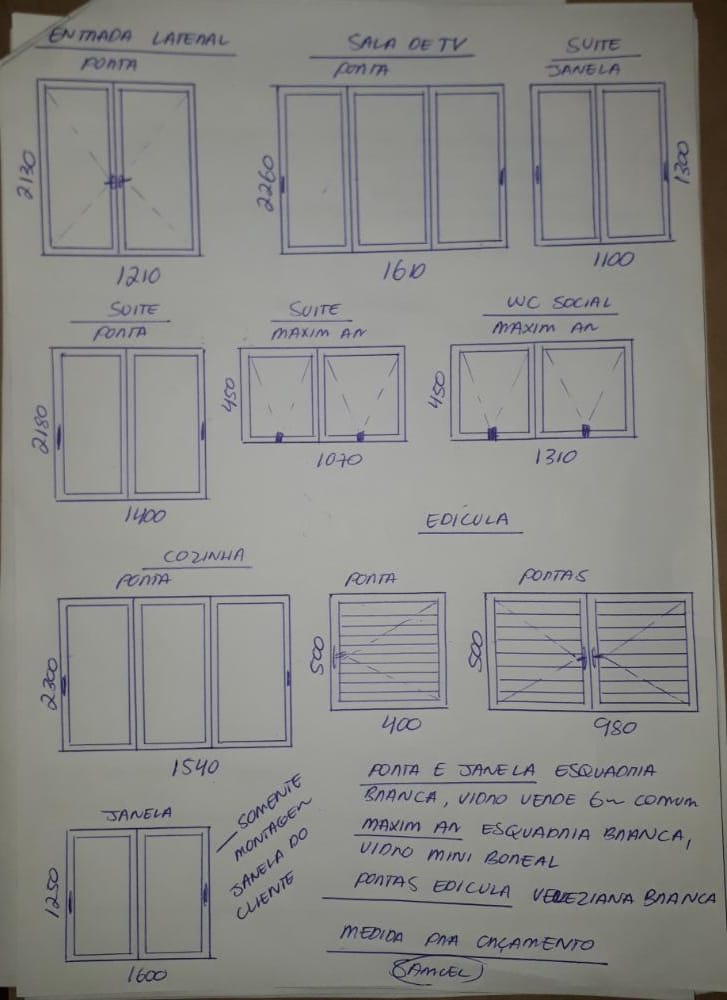 ENTRADA LATERAL
PORTA
2130
1210
SALA DE TV
PORTA
2260
1610
SUITE
JANELA
1300
1100
SUITE
PORTA
2180
1400
SUITE
MAXIM AR
450
1070
WC SOCIAL
MAXIM AR
450
1310
EDÍCULA
COZINHA
PORTA
2300
1540
PORTA
500
400
PORTAS
500
980
JANELA
1250
1600
SOMENTE
MONTAGEM
JANELA DO
CLIENTE
PORTA E JANELA ESQUADRIA
BRANCA, VIDRO VERDE 6m COMUM
MAXIM AR ESQUADRIA BRANCA,
VIDRO MINI BOREAL
PORTAS EDICULA VENEZIANA BRANCA
MEDIDA PRA ORÇAMENTO